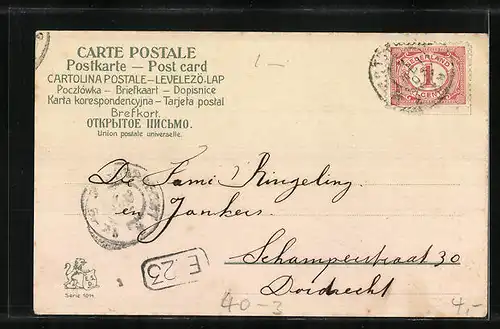 CARTE POSTALE
Postkarte — Post card
CARTOLINA POSTALE—LEVELEZŐ-LAP
Pocztówka — Briefkaart — Dopisnice
Karta korespondencyjna — Tarjeta postal
Brefkort.
ОТКРЫТОЕ ПИСЬМО.
Union postale universelle.
1-
NEDERLAND
1
CENT
De Fami Ringeling
en Jankers.
Schamperstraat 30
Dordrecht
E.23
Serie 1011
40-3
4,-